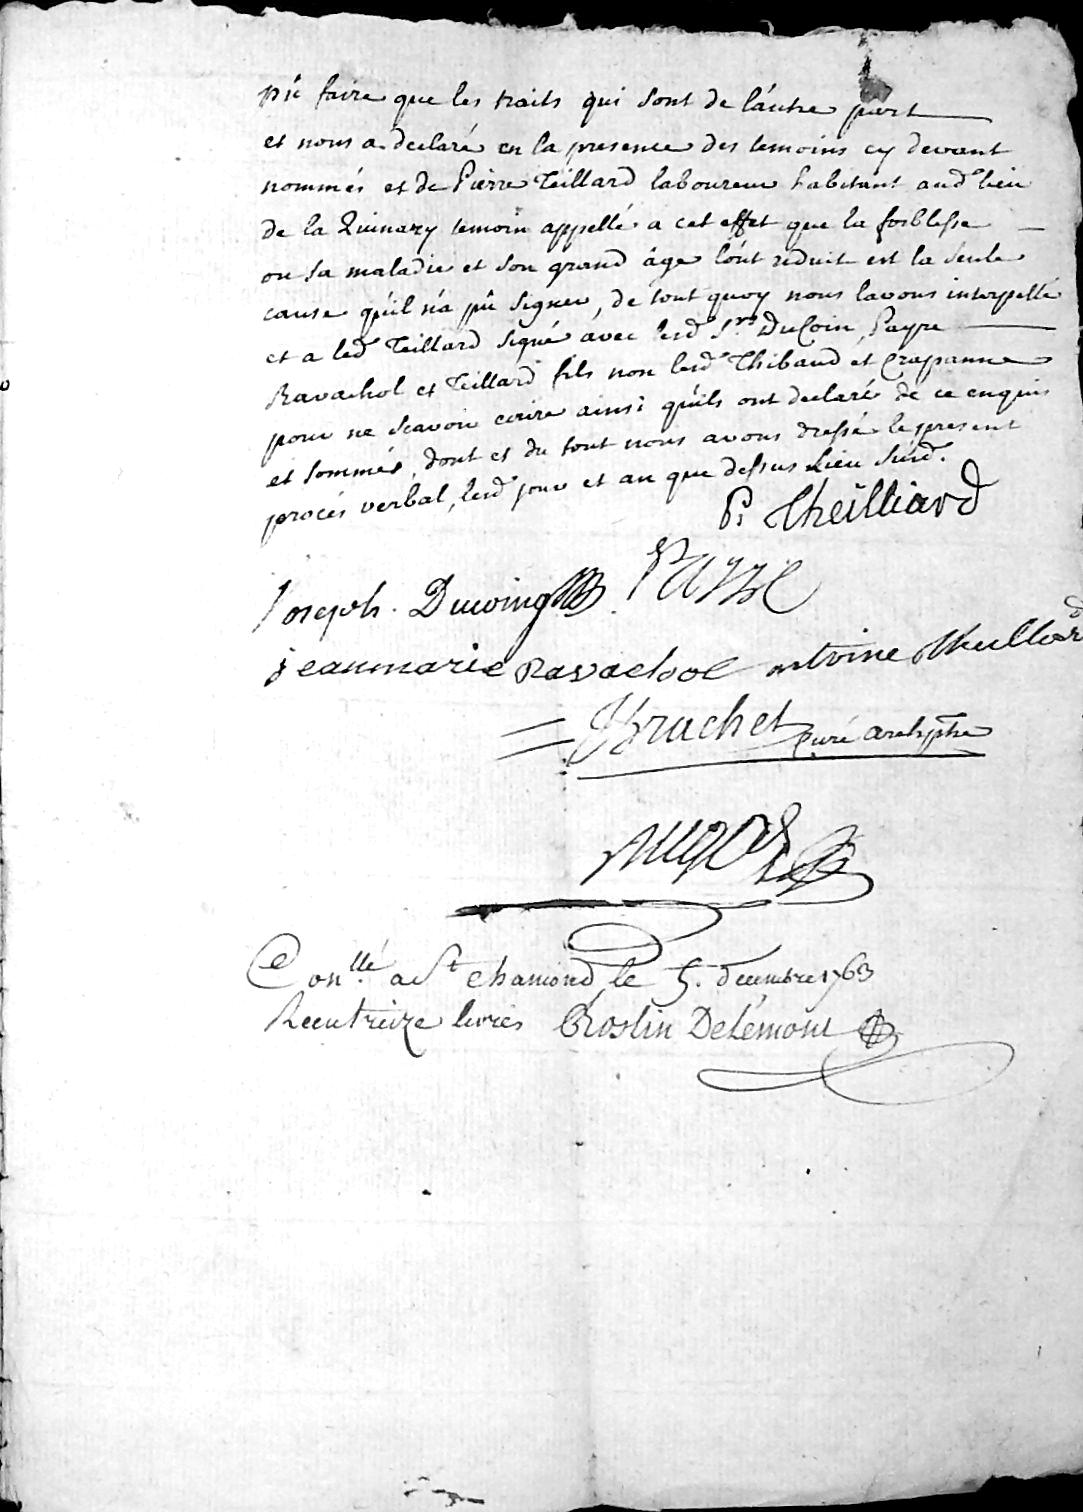 pû faire que les traits qui sont de láutre part
et nous a declaré en la presence des temoins cy devant
nommés et de Pierre Teillard laboureur habitant aud.t lieu
de la Quinary temoin appellé a cet effet que la foiblesse
ou sa maladie et son grand âge lónt reduit est la seule
cause qúil ńa pû signer, de tout quoy nous lavons interpellé
et a led.t Teillard signé avec lesd.t S.rs DuCoin, Payre
Ravachol et Teillard fils non lesd.t Thibaud et Crapanne
pour ne scavoir ecrire ainsi qúils ont declaré de ce enquis
et sommés, dont et du tout nous avons dressé le present
procés verbal, lesd jour et an que dessus Lieu susd.
P: Theilliard
Joseph. Ducoing Payre
jeanmarie Ravachol antoine theillard
Bruchet curé archiptre
Con.llé a St chamond le 5. decembre 1763
Recu treize livres Roslin Delémont